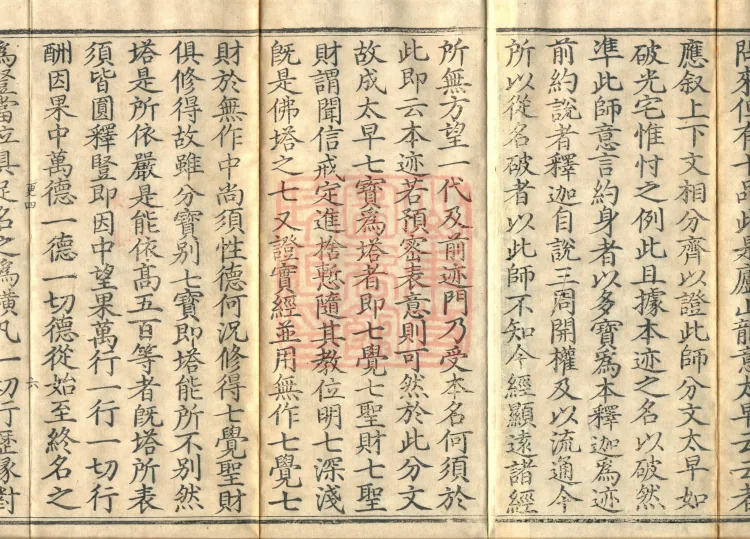 應叙上下文相分齊以證此師分文太早如
破光宅惟忖之例此且據本迹之名以破然
準此師意言約身者以多寶為本釋迦為迹
前約說者釋迦自說三周開權及以流通今
所以從名破者以此師不知今經顯遠諸經
所無方望一代及前迹門乃受本名何須於
此即云本迹若預密表意則可然於此分文
故成太早七寶為塔者即七覺七聖財七聖
財謂聞信戒定進捨慙隨其教位明七深淺
旣是佛塔之七又證實經並用無作七覺七
財於無作中尚須性德何況修得七覺聖財
俱修得故雖分寶別七寶即塔能所不別然
塔是所依嚴是能依髙五百等者旣塔所表
須皆圓釋豎即因中望果萬行一行一切行
酬因果中萬德一德一切德從始至終名之
為豎當位具足名之為橫凡一切行歷緣對